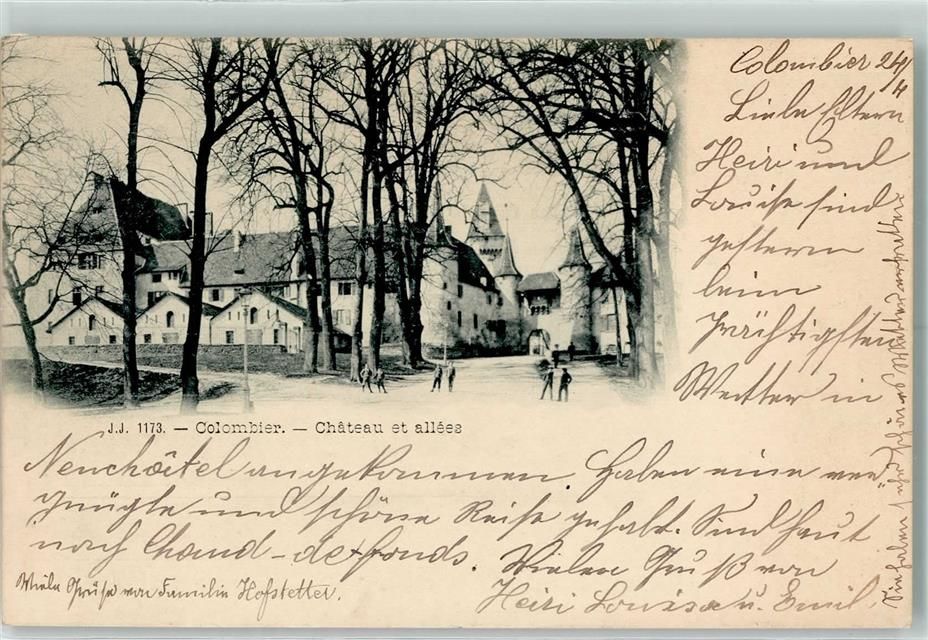 Colombier 24/4
Liebe Eltern
Heiri und
Louise sind
gestern
beim
prächtigsten
Wetter in
J.J. 1173. — Colombier. — Château et allées
Neuchâtel angekommen. Haben eine ver-
gnügte und schöne Reise gehabt. Sind heut
nach Chaud-de-fonds. Vielen Gruß von
Heiri Louise u. Emil.
Viele Grüße von Familie Hofstetter.
Sie haben sehr schönes